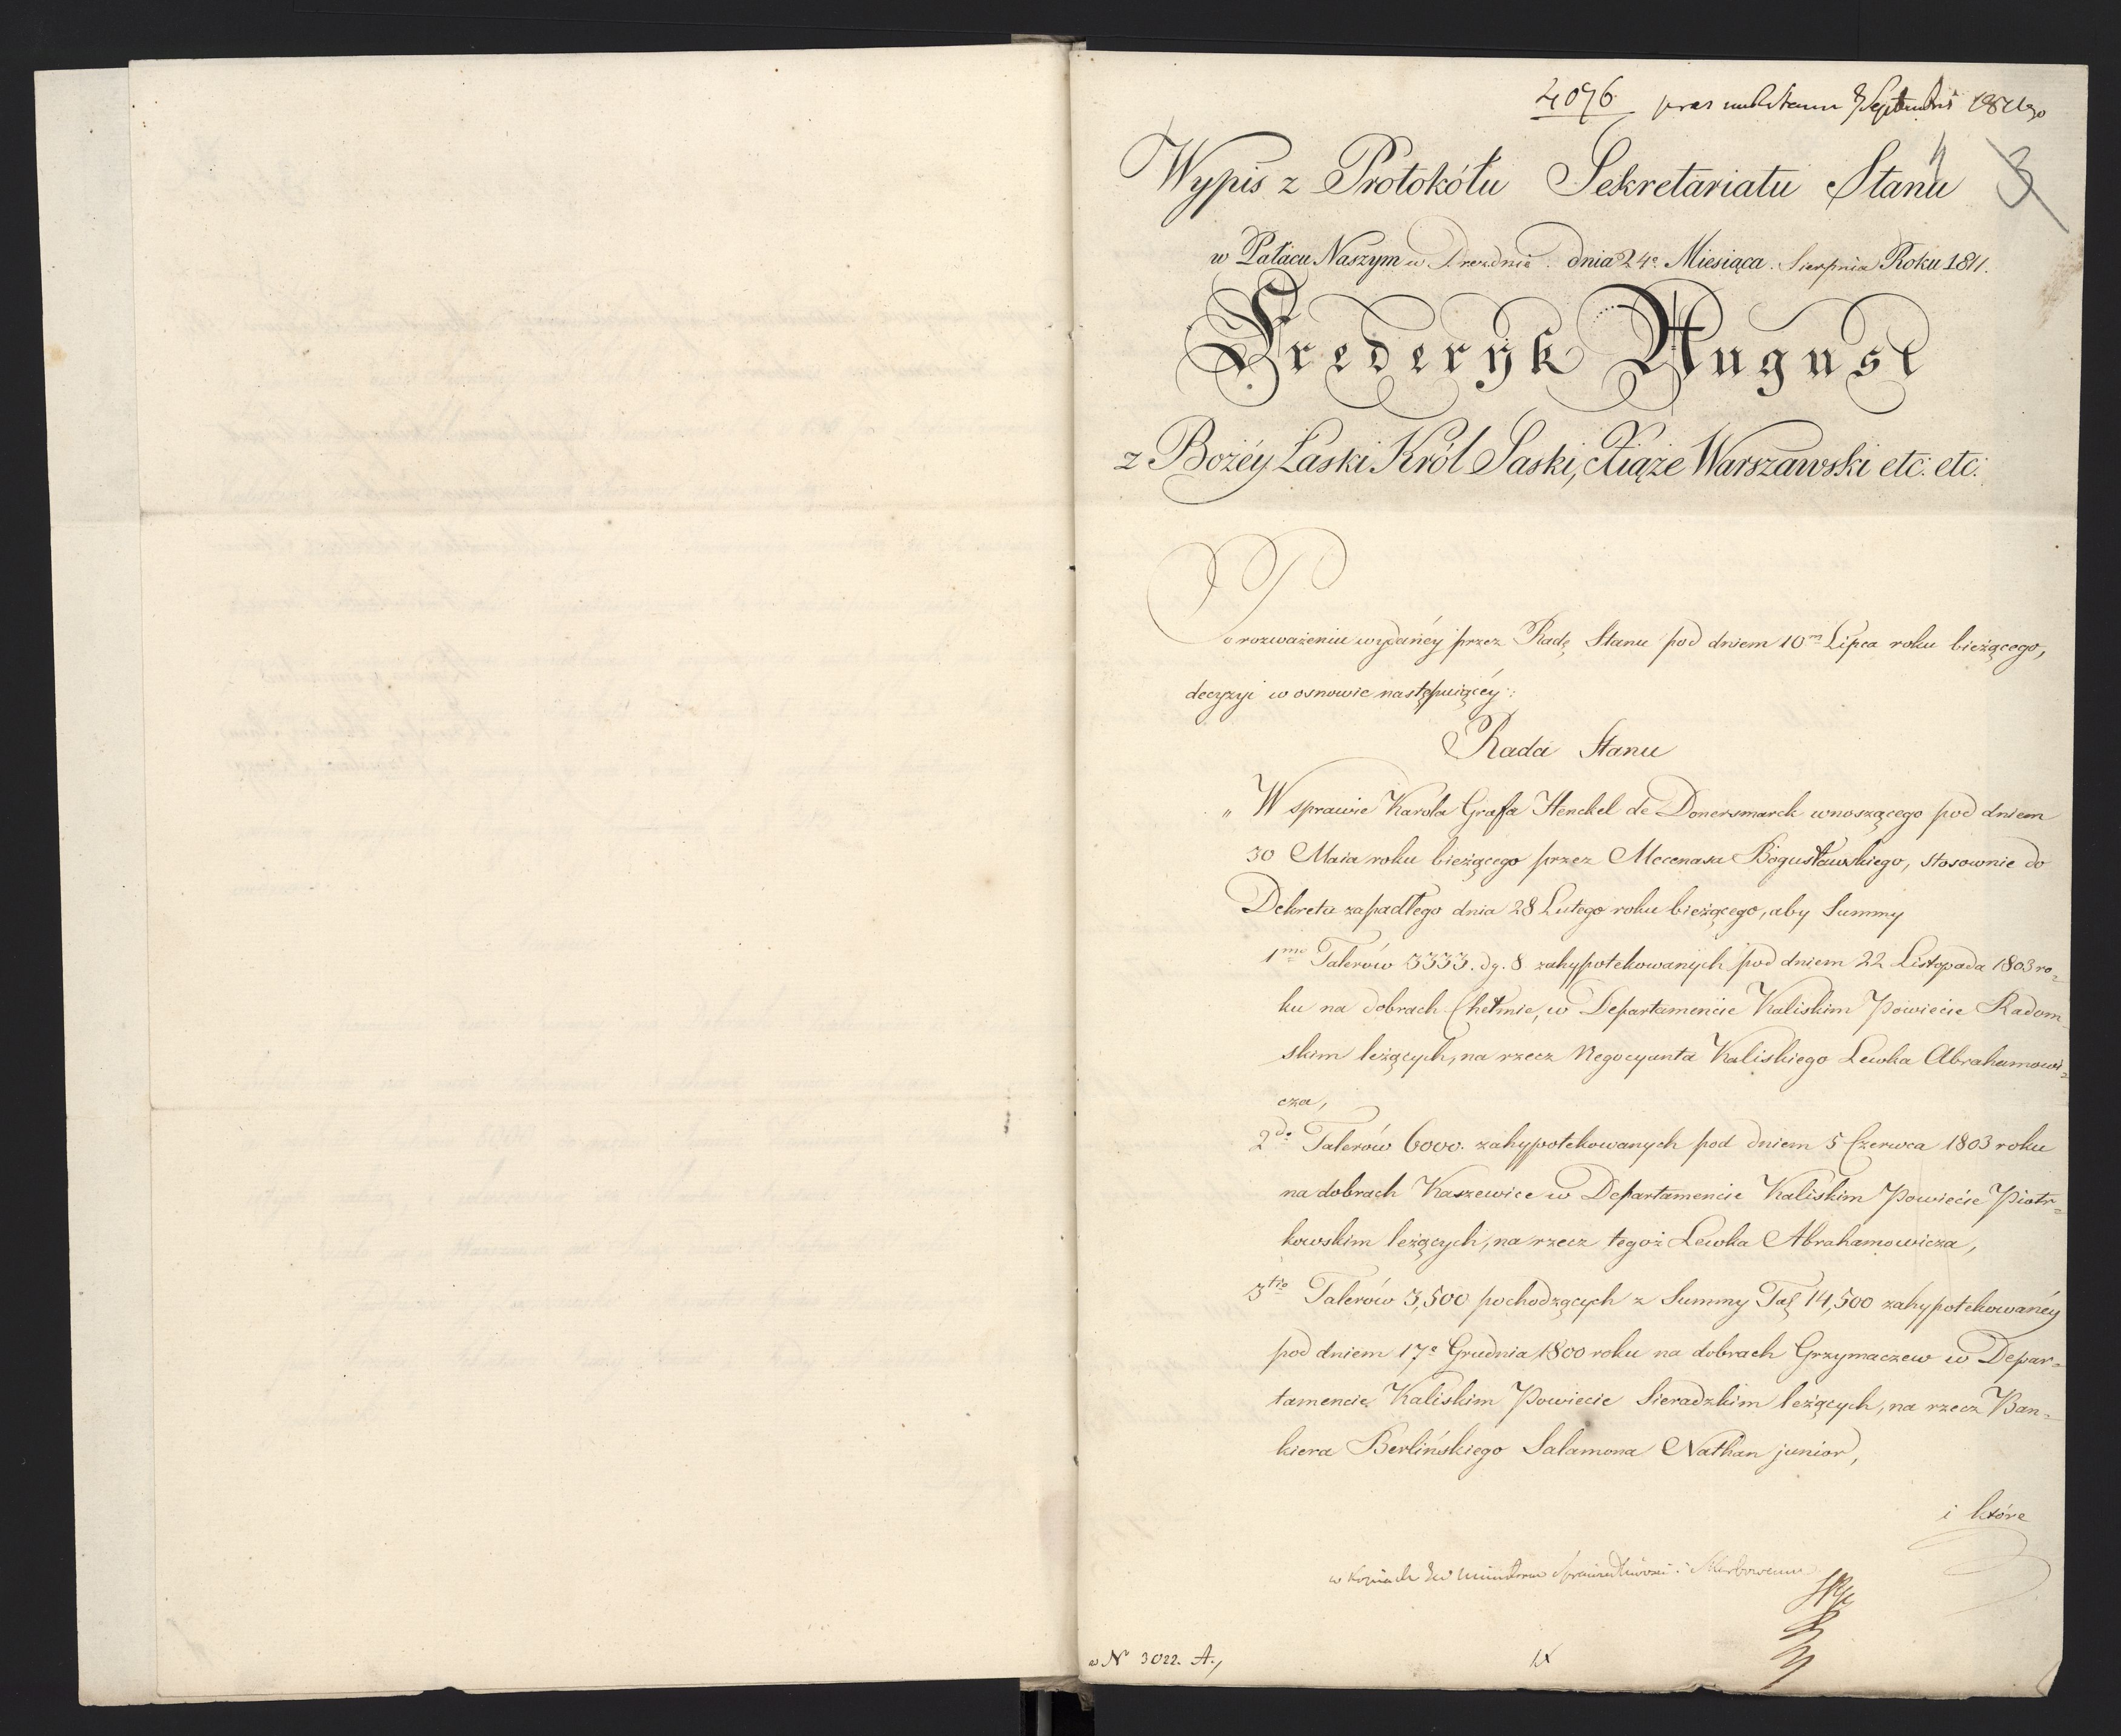 4096 pras 7 Septembris 1811
Wypis z Protokółu Sekretariatu Stanu
4 3
w Pałacu Naszym w Dreznie dnia 24º Miesiąca Sierpnia Roku 1811.
Frederyk August
z Bożéy Łaski Król Saski, Xiąże Warszawski etc: etc:
Po rozważeniu wydanéy przez Radę Stanu pod dniem 10m Lipca roku bieżącego,
decyzyi w osnowie następuiącéy:
Rada Stanu
„ W sprawie Karola Grafa Henckel de Donersmarck wnoszącego pod dniem
30 Maia roku bieżącego przez Mecenasa Bogusławskiego, stosownie do
Dekretu zapadłego dnia 28 Lutego roku bieżącego, aby Summy
1mo Talerów 3333. dg. 8 zahypotekowanych pod dniem 22 Listopada 1803 ro=
ku na dobrach Chełmie, w Departamencie Kaliskim Powiecie Radom=
skim leżących, na rzecz Negocyanta Kaliskiego Lewka Abrahamowi=
cza,
2do Talerów 6000. zahypotekowanych pod dniem 5 Czerwca 1803 roku
na dobrach Kaszewice w Departamencie Kaliskim Powiecie Piotr=
kowskim leżących, na rzecz tegoż Lewka Abrahamowicza,
3tio Talerów 3,500 pochodzących z Summy Tal 14,500 zahypotekowanéy
pod dniem 17º Grudnia 1800 roku na dobrach Grzymaczew w Depar=
tamencie Kaliskim Powiecie Sieradzkim leżących, na rzecz Ban=
kiera Berlińskiego Salamona Nathan junior,
i które
w kopiach do Ministrów Sprawiedliwości i Skarbowemu
w Nº 3022. A.,